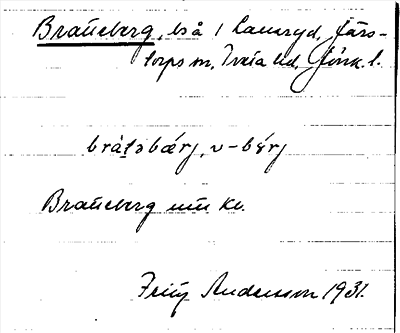 Bratteberg, bså i Lannryd, Järs-
torps sn, Tveta hd, Jönk. l.
bràt̯əbǽrj, v -bǽrj
Bratteberg
Andersson 1931.